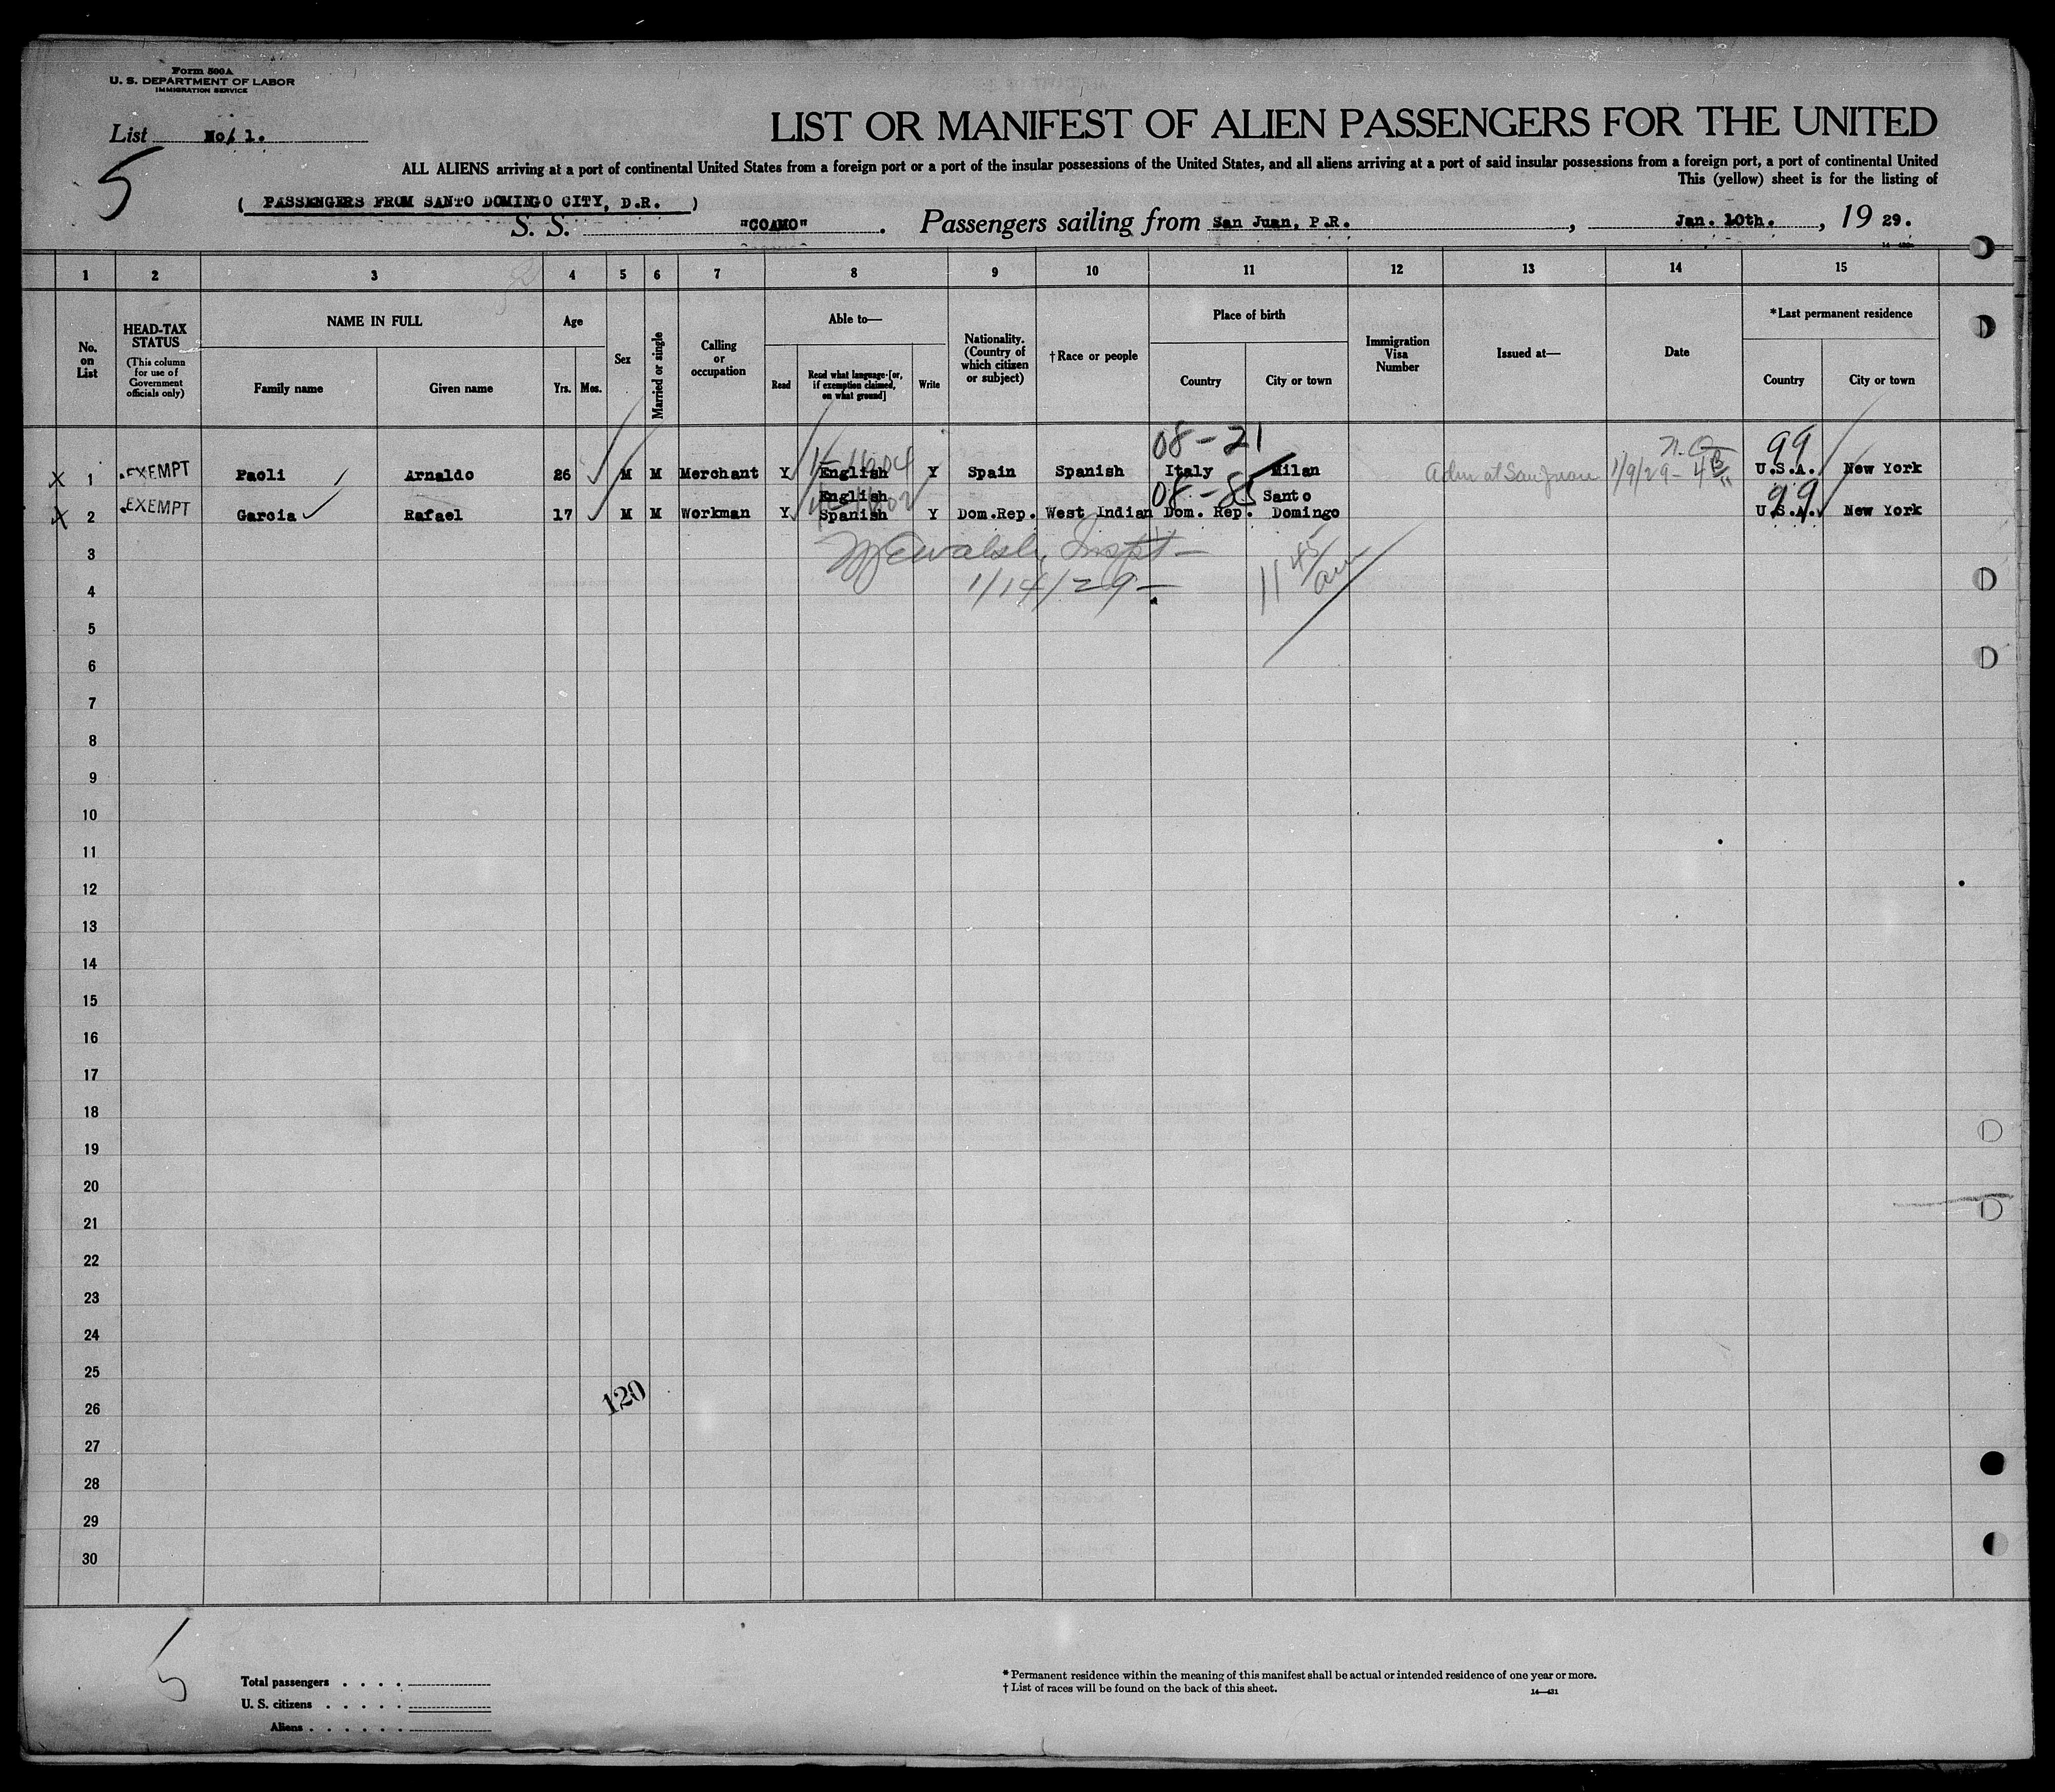 Form 500A
U. S. DEPARTMENT OF LABOR
IMMIGRATION SERVICE
List No. 1.
5
LIST OR MANIFEST OF ALIEN PASSENGERS FOR THE UNITED
ALL ALIENS arriving at a port of continental United States from a foreign port or a port of the insular possessions of the United States, and all aliens arriving at a port of said insular possessions from a foreign port, a port of continental United
This (yellow) sheet is for the listing of
( PASSENGERS FROM SANTO DOMINGO CITY, D.R. )
S. S. "COAMO". Passengers sailing from San Juan, P.R., Jan. 10th., 19 29.
1 2 3 4 5 6 7 8 9 10 11 12 13 14 15
No. on List
HEAD-TAX STATUS (This column for use of Government officials only)
NAME IN FULL
Family name
Given name
Age
Yrs. Mos.
Sex
Married or single
Calling or occupation
Able to—
Read
Read what language [or, if exemption claimed, on what ground]
Write
Nationality. (Country of which citizen or subject)
†Race or people
Place of birth
Country
City or town
Immigration Visa Number
Issued at—
Date
*Last permanent residence
Country
City or town
08-21 99
X 1 EXEMPT Paoli Arnaldo 26 M M Merchant Y English Y Spain Spanish Italy Milan Adm at San Juan 1/9/29- U.S.A. New York
English 08 - Santo 99
X 2 EXEMPT Garcia Rafael 17 M M Workman Y Spanish Y Dom.Rep. West Indian Dom. Rep. Domingo U.S.A. New York
3
Walsh, Inspt-
1/14/29- 11 45/am
4
5
6
7
8
9
10
11
12
13
14
15
16
17
18
19
20
21
22
23
24
25
120
26
27
28
29
30
5
Total passengers . . . .
U. S. citizens . . . . .
Aliens . . . . . .
* Permanent residence within the meaning of this manifest shall be actual or intended residence of one year or more.
† List of races will be found on the back of this sheet.
14—431